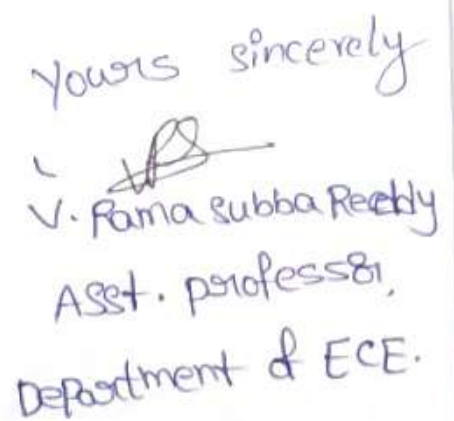 Yours sincerely
V. Rama Subba Reddy
Asst. professor,
Department of ECE.